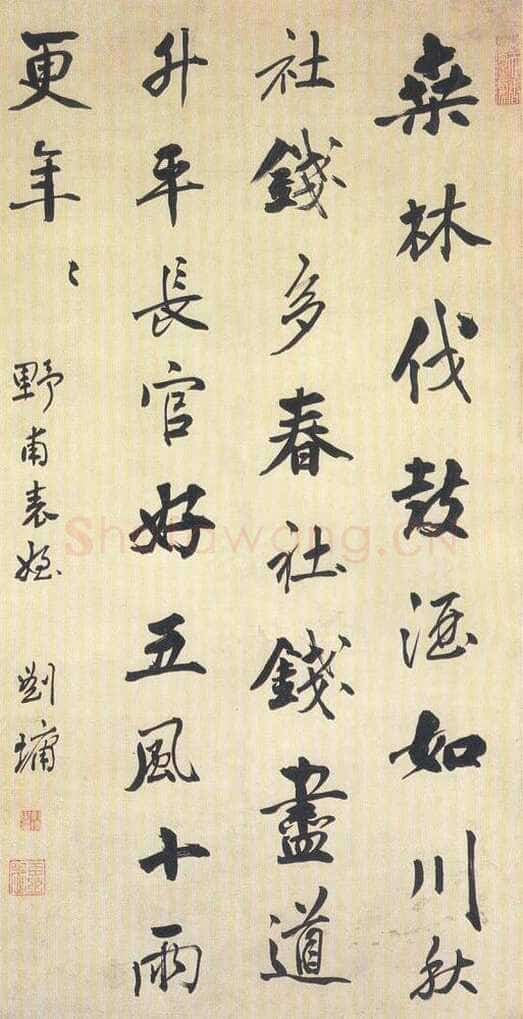 桒林伐鼓酒如川秋
社錢多春社錢盡道
升平長官好五風十雨
更年〻
野甫表姪 劉墉
Shufawang.CN